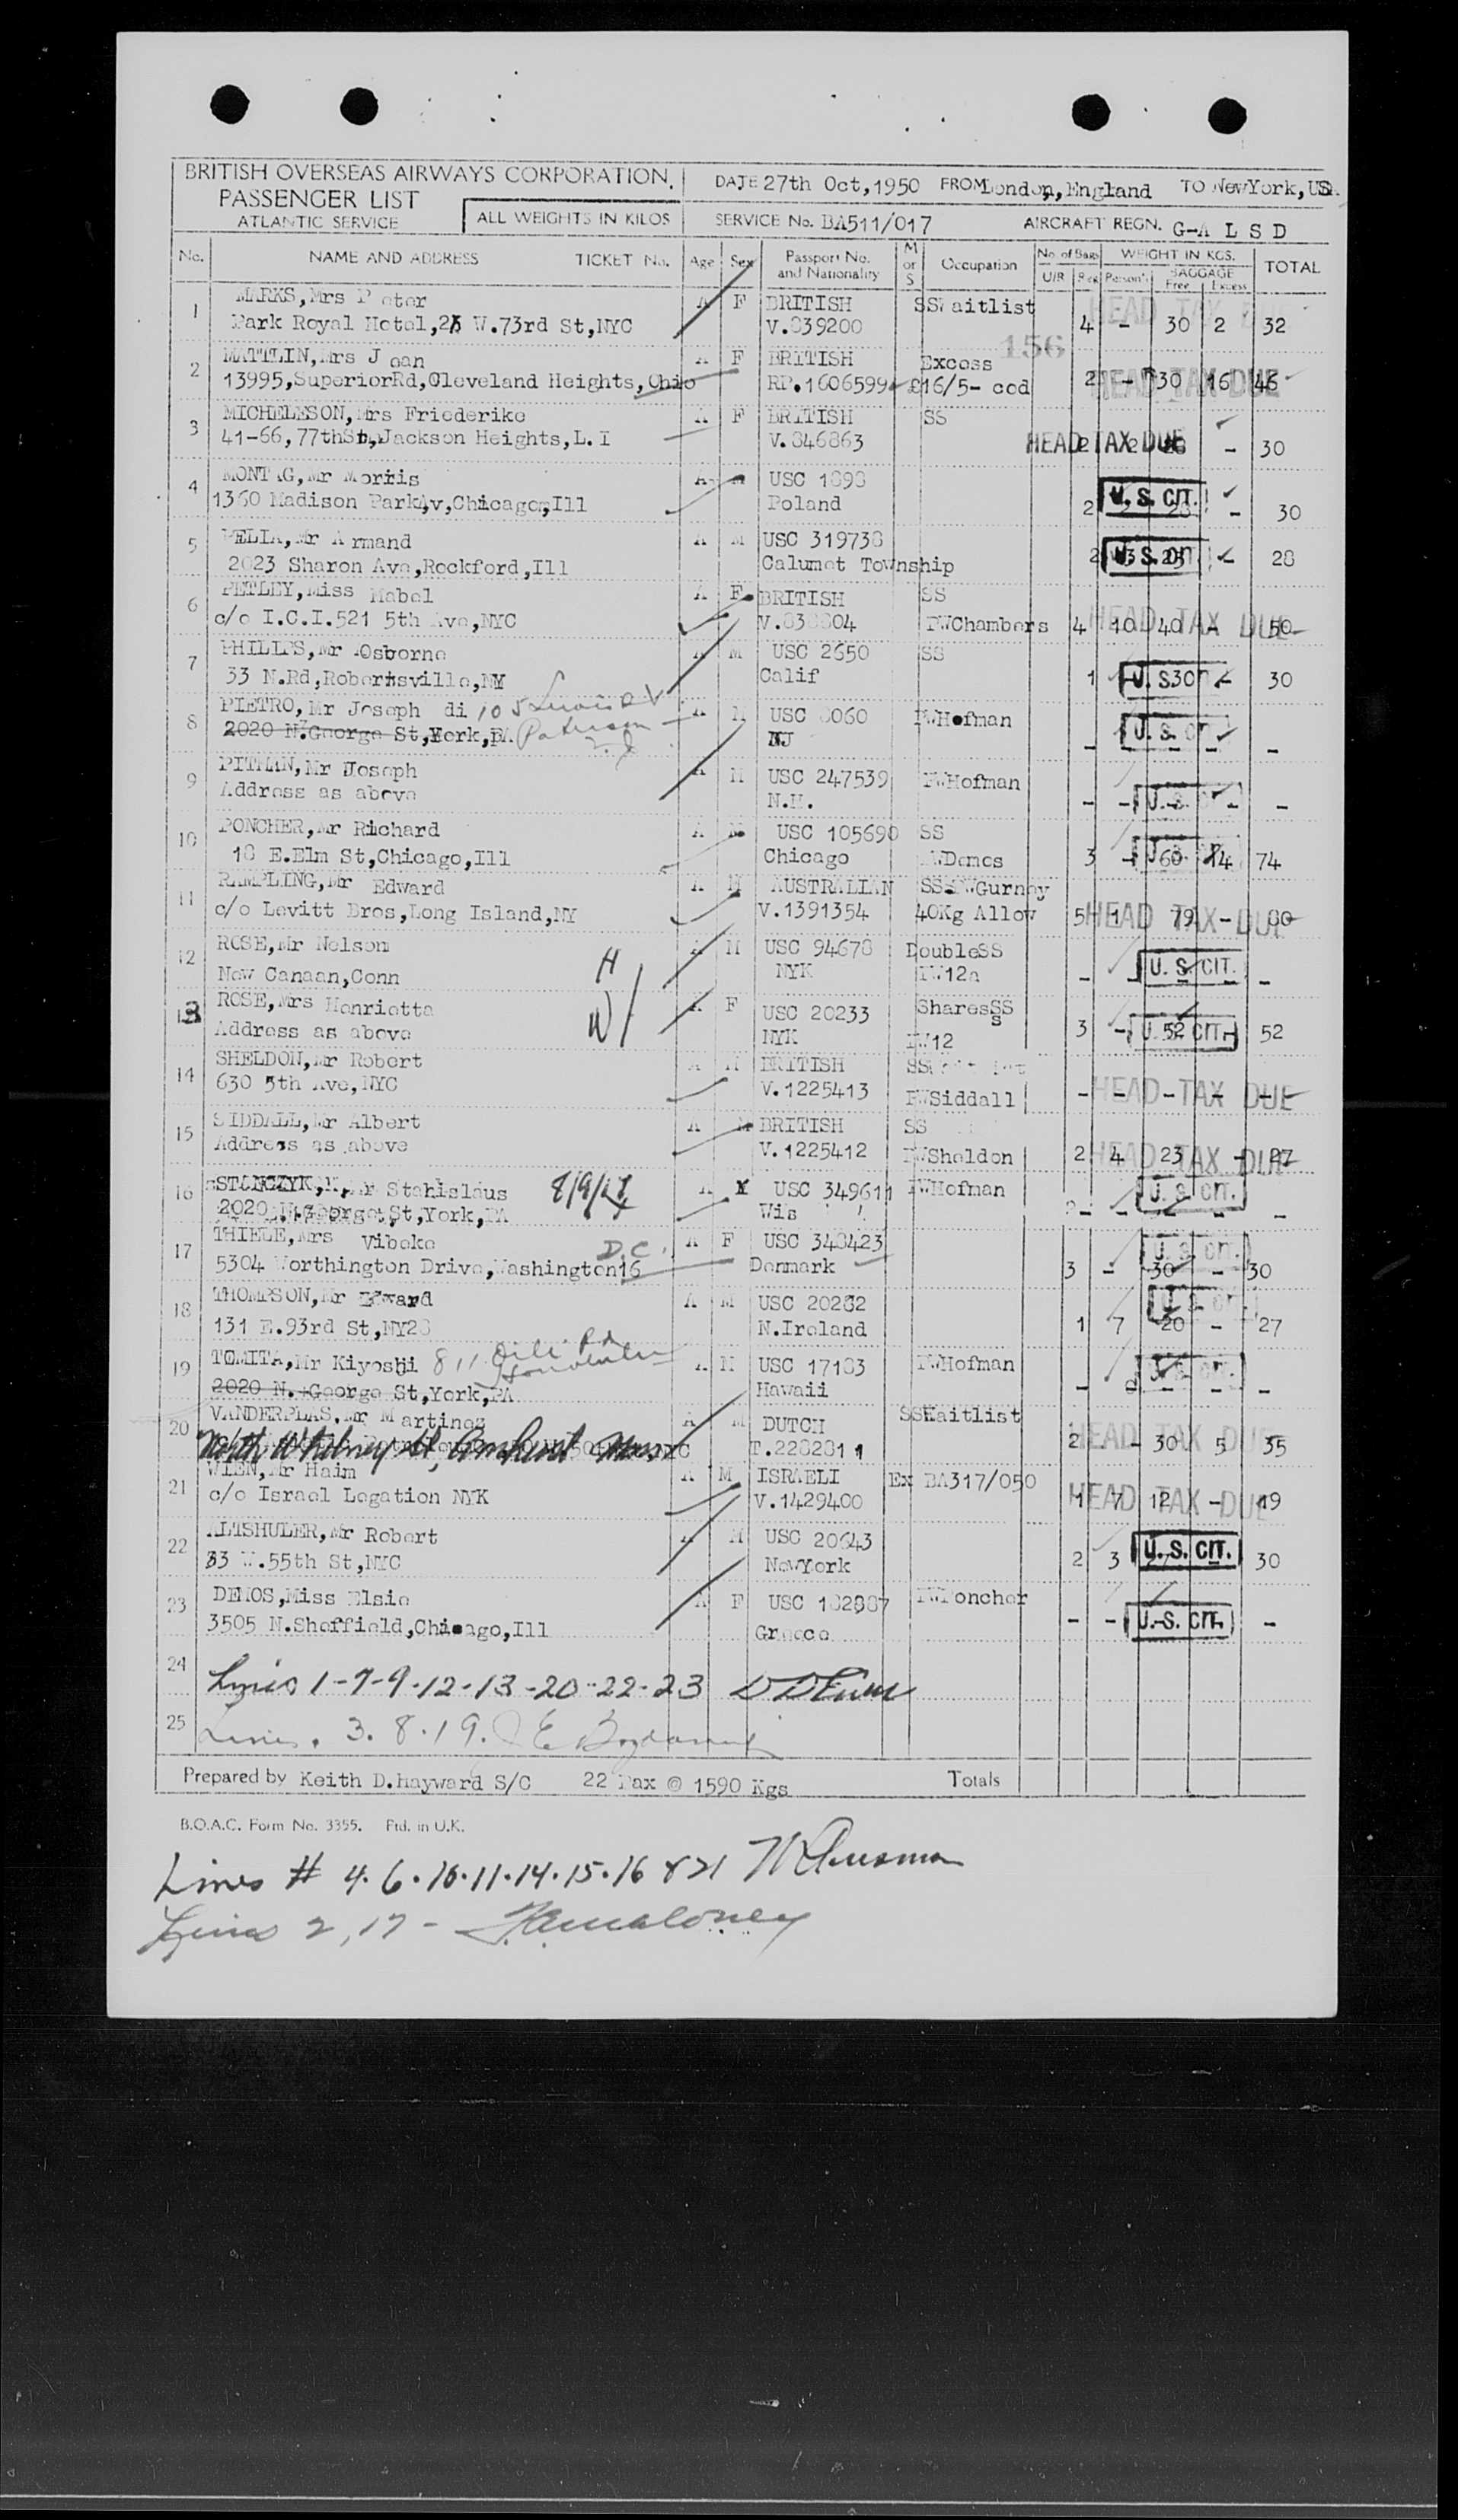 BRITISH OVERSEAS AIRWAYS CORPORATION. DATE 27th Oct,1950 FROM London,England TO NewYork,USA.
PASSENGER LIST
ATLANTIC SERVICE ALL WEIGHTS IN KILOS SERVICE No. BA511/017 AIRCRAFT REGN. G-A L S D
No. NAME AND ADDRESS TICKET No. Age Sex Passport No. and Nationality M or S Occupation No. of Bags U/R Reg WEIGHT IN KGS. Person'l BAGGAGE Free Excess TOTAL
1 MARKS,Mrs P eter A F BRITISH SSWaitlist HEAD TAX
Park Royal Hotel,23 W.73rd St,NYC V.839200 4 - 30 2 32
156
2 MATTLIN,Mrs J oan A F BRITISH Excess
13995,SuperiorRd,Cleveland Heights,Ohio RP.1606599 £16/5- ccd 2 - 30 16 46 HEAD TAX DUE
3 MICHELESON,Mrs Friederike A F BRITISH SS
41-66,77thSt,Jackson Heights,L.I V.846863 HEAD TAX DUE 2 2 - 30
4 MONTAG,Mr Morris A M USC 1898 U.S. CIT.
1360 Madison ParkAv,Chicago,Ill Poland 2 28 - 30
5 PELIA,Mr A rmand A M USC 319738
2023 Sharon Ave,Rockford,Ill Calumet Township 2 3 25 - 28 U.S. CIT.
6 PETLEY,Miss Mabel A F BRITISH SS
c/o I.C.I.521 5th Ave,NYC V.838804 TWChambers 4 10 40 - 50 HEAD TAX DUE
7 PHILLPS,Mr Osborne A M USC 2650 SS
33 N.Rd,Robertsville,NY Calif 1 - 30 - 30 U.S.
8 PIETRO,Mr Joseph di 105 Lewis A M USC 6060 TWHofman
2020 N.George St,York,PA. Paterson N.J NJ - - - - - U.S. CIT.
9 PITMAN,Mr Joseph A M USC 247539 TWHofman
Address as above N.H. - - - - - U.S.
10 PONCHER,Mr Richard A M USC 105690 SS
18 E.Elm St,Chicago,Ill Chicago TWDemos 3 - 60 14 74
11 RAMPLING,Mr Edward A M AUSTRALIAN SS TWGurney
c/o Levitt Bros,Long Island,NY V.1391354 40Kg Allow 5 1 79 - 80 HEAD TAX DUE
12 ROSE,Mr Nelson H A M USC 94678 DoubleSS
New Canaan,Conn NYK TW12a - - - - - U.S. CIT.
13 ROSE,Mrs Henrietta A F USC 20233 SharesSS
Address as above W NYK TW12 3 - 52 - 52 U.S. CIT.
14 SHELDON,Mr Robert A M BRITISH SS
630 5th Ave,NYC V.1225413 TWSiddall - - - - - HEAD TAX DUE
15 SIDDALL,Mr Albert A M BRITISH SS
Address as above V.1225412 TWSheldon 2 4 23 - 27 HEAD TAX DUE
16 STANCZYK,Mr Stanislaus 8/9/17 A M USC 349611 TWHofman U.S. CIT.
2020 N.George St,York,PA Wis - - - - -
17 THIELE,Mrs Vibeke D.C. A F USC 348423 U.S. CIT.
5304 Worthington Drive,Washington16 Denmark 3 - 30 - 30
18 THOMPSON,Mr Edward A M USC 20282
131 E.93rd St,NY28 N.Ireland 1 7 20 - 27
19 TOMITA,Mr Kiyoshi 811 Rd Honolulu A M USC 17183 TWHofman
2020 N. George St,York,PA Hawaii - - - - -
20 VANDERPLAS,Mr M artinez A M DUTCH SSWaitlist
North Whitney St, Amherst Mass T.2282811 2 - 30 5 35 HEAD TAX DUE
21 WIEN,Mr Haim A M ISRAELI Ex BA317/050
c/o Israel Legation NYK V.1429400 1 7 12 - 19 HEAD TAX DUE
22 ALTSHULER,Mr Robert A M USC 20643 U.S. CIT.
33 W.55th St,NYC NewYork 2 3 27 - 30
23 DEMOS,Miss Elsie A F USC 182887 TWPoncher
3505 N.Sheffield,Chicago,Ill Greece - - - - - U.S. CIT.
24 Lines 1-7-9-12-13-20-22-23
25 Lines. 3. 8. 19.
Prepared by Keith D.Hayward S/C 22 Pax @ 1590 Kgs Totals
B.O.A.C. Form No. 3355. Ptd. in U.K.
Lines # 4. 6. 10. 11. 14. 15. 16 & 21
Lines 2, 17 -